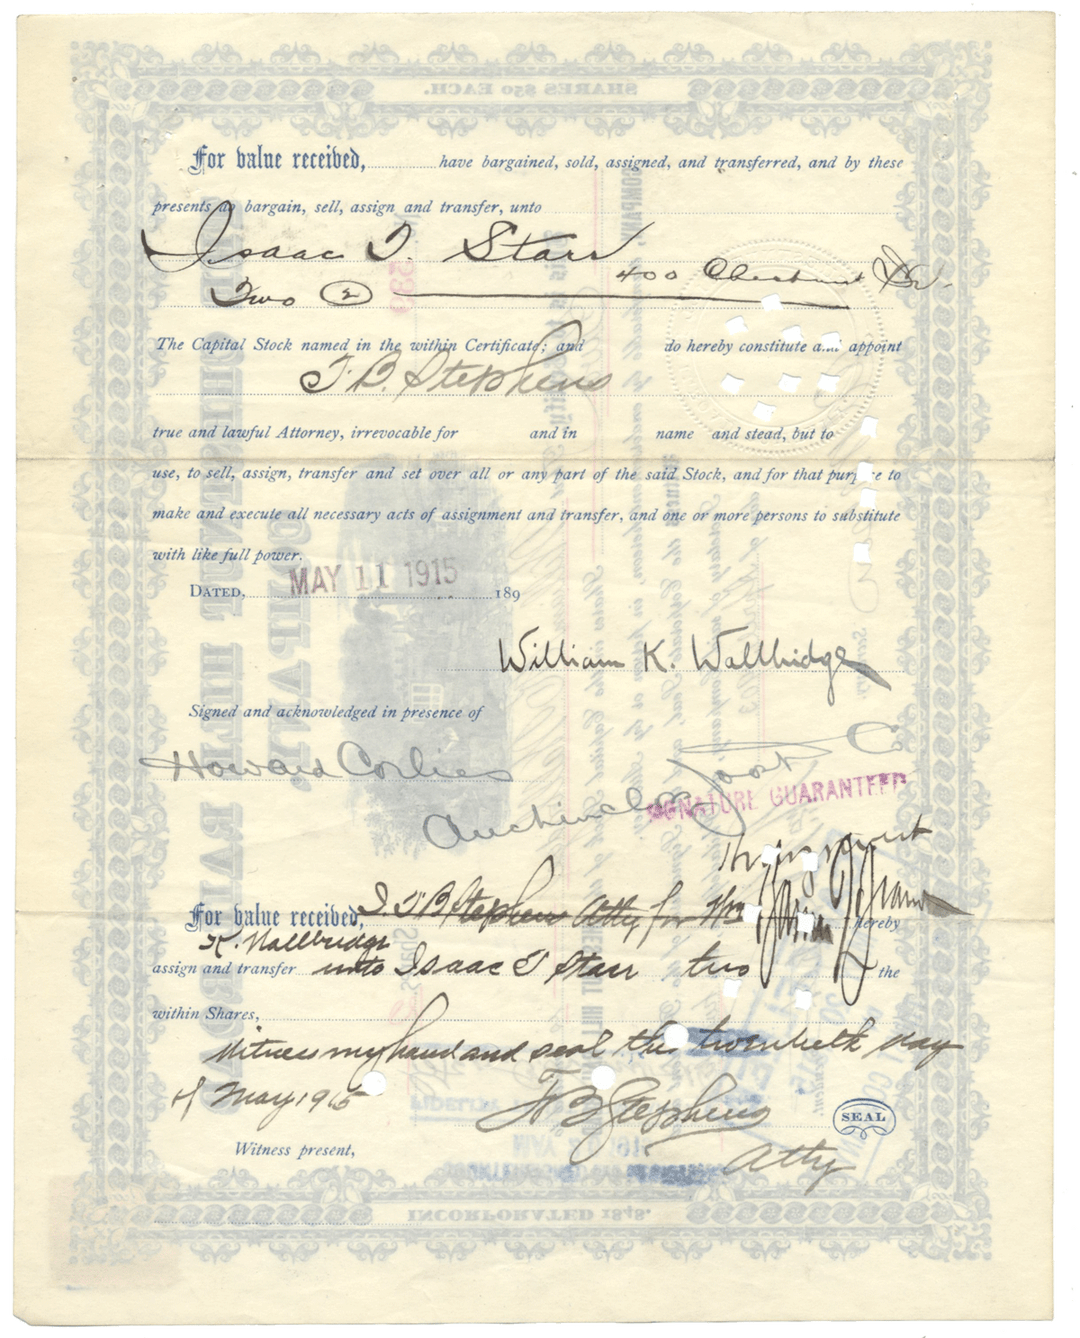 SHARES $50 EACH.
For value received, have bargained, sold, assigned, and transferred, and by these
presents do bargain, sell, assign and transfer, unto
Isaac T. Starr
400 Chestnut St.
Two (2)
The Capital Stock named in the within Certificate; and do hereby constitute and appoint
T. B. Stephens
true and lawful Attorney, irrevocable for and in name and stead, but to
use, to sell, assign, transfer and set over all or any part of the said Stock, and for that purpose to
make and execute all necessary acts of assignment and transfer, and one or more persons to substitute
with like full power.
DATED, MAY 11 1915 189
William K. Wallbridge
Signed and acknowledged in presence of
Howard Corlies
SIGNATURE GUARANTEED
For value received, I. T B Stephens Atty for Wm hereby
K. Wallbridge
assign and transfer unto Isaac T Starr two the
within Shares,
Witness my hand and seal this twentieth day
of May 1915
T B Stephens
SEAL
Atty
Witness present,
INCORPORATED 1848.